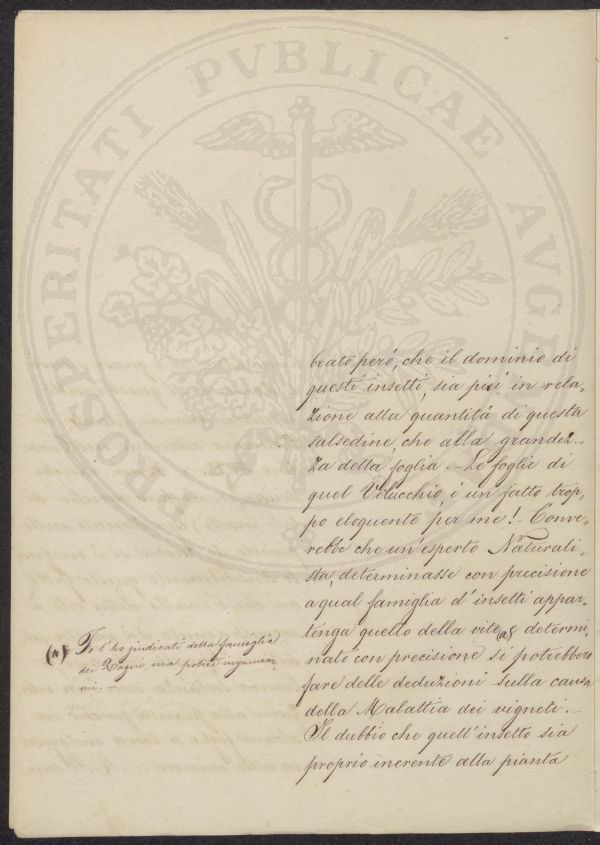 PROSPERITATI PVBLICAE AVGEN
brato però, che il dominio di
questi insetti, sia più in rela-
zione alla quantità di questa
salsedine, che alla grandez-
za della foglia. - Le foglie di
quel Vilucchio, è un fatto trop-
po eloquente per me! Conver-
rebbe che un'esperto Naturali-
sta, determinasse con precisione
a qual famiglia d'insetti appar-
tenga quello della vite (a) determi-
nato con precisione si potrebbero
fare delle deduzioni sulla causa
della Malattia dei vigneti. -
Il dubbio che quell'insetto sia
proprio inerente alla pianta
(a) Io l'ho giudicati della famiglia
dei Ragni ma potrei ingannar-
mi. -